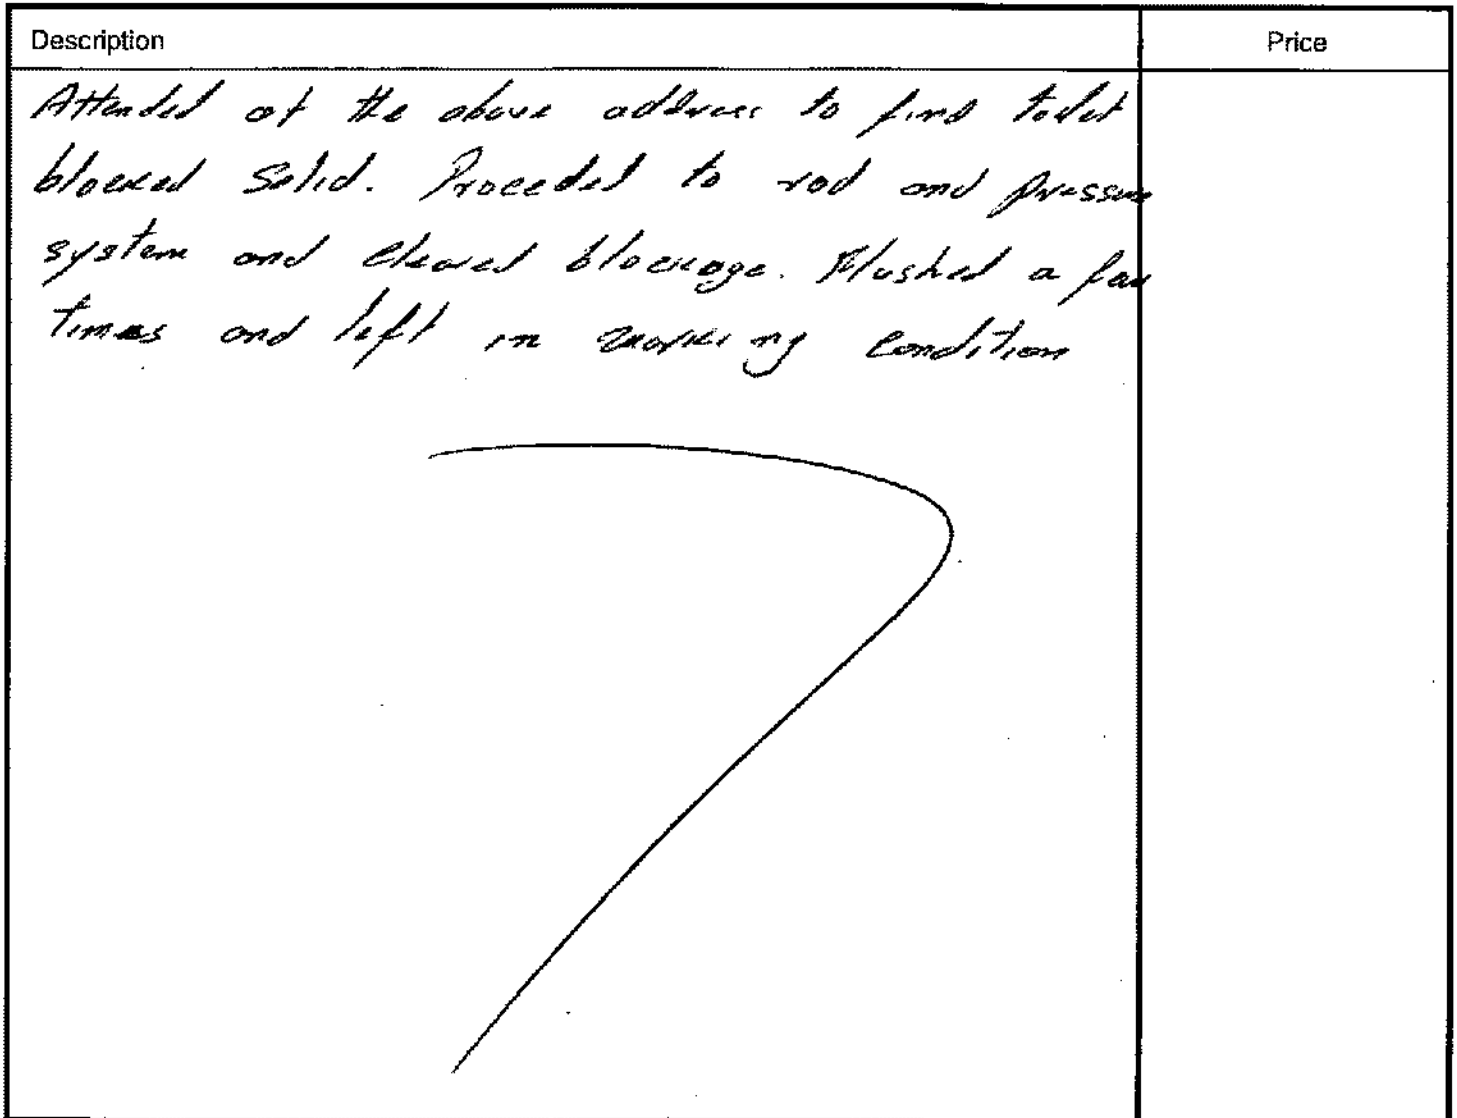 Description
Price
Attended at the above address to find toilet
blocked solid. Proceded to rod and pressure
system and cleared blockage. Flushed a few
times and left in working condition